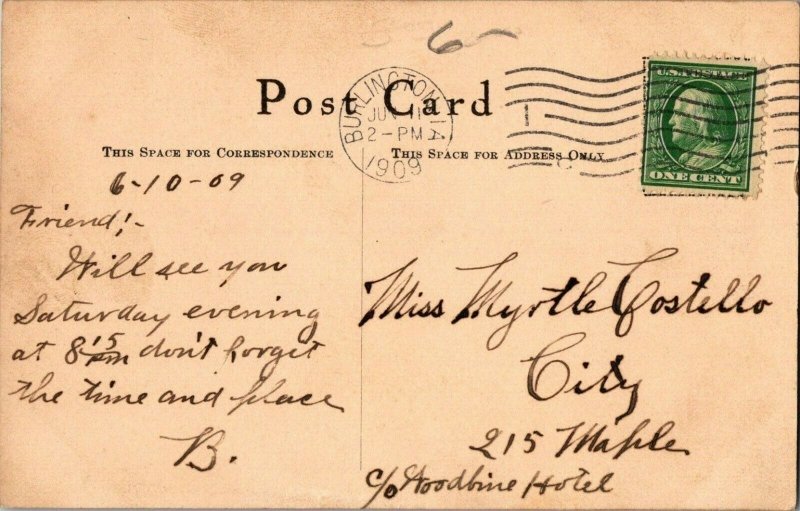 6-
Post Card
BURLINGTON, IA.
JUN 11
2-PM
1909
1
U.S. POSTAGE
ONE CENT
THIS SPACE FOR CORRESPONDENCE
THIS SPACE FOR ADDRESS ONLY
6-10-09
Friend;-
Will see you
Saturday evening
at 8 15 pm don't forget
the time and place
B.
Miss Myrtle Costello
City
215 Maple
c/o Woodbine Hotel